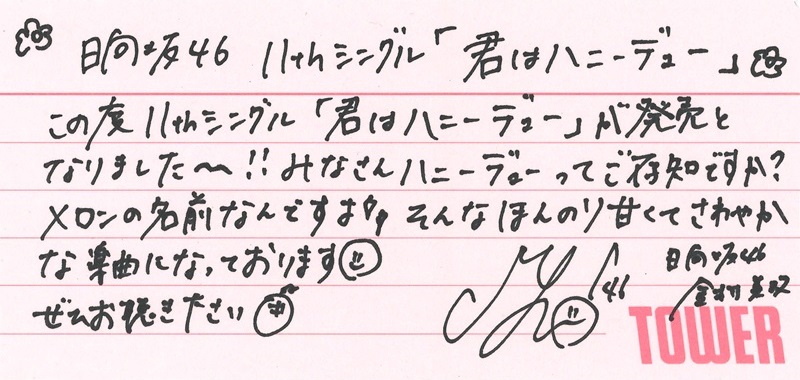 日向坂46 11thシングル「君はハニーデュー」
この度11thシングル「君はハニーデュー」が発売と
なりました〜!! みなさんハニーデューってご存知ですか?
メロンの名前なんですよ!! そんなほんのり甘くてさわやか
な楽曲になっております
ぜひお聴きください
46
日向坂46
金村美玖
TOWER